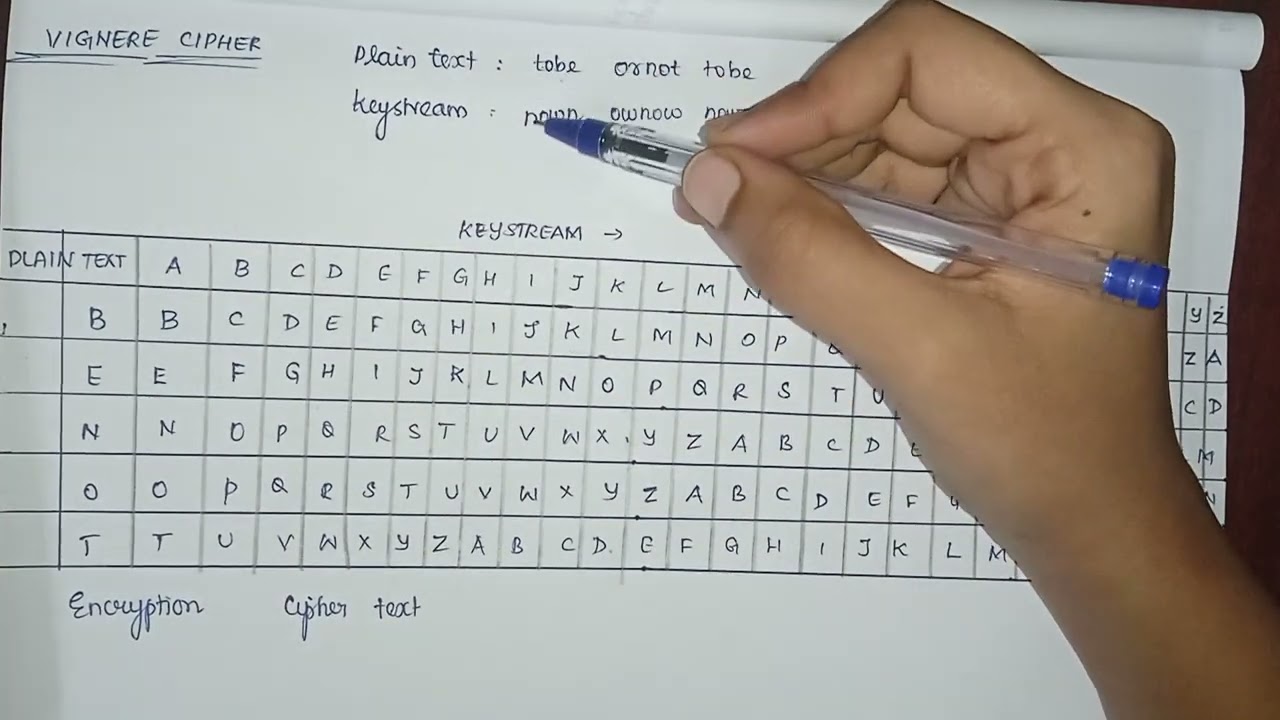 VIGNERE CIPHER
Plain text : tobe ornot tobe
Keystream : nown ownow
KEYSTREAM →
PLAIN TEXT A B C D E F G H I J K L M N Y Z
B B C D E F G H I J K L M N O P Z A
E E F G H I J K L M N O P Q R S T U C D
N N O P Q R S T U V W X Y Z A B C D E M
O O P Q R S T U V W X Y Z A B C D E F G N
T T U V W X Y Z A B C D E F G H I J K L M
Encryption Cipher text